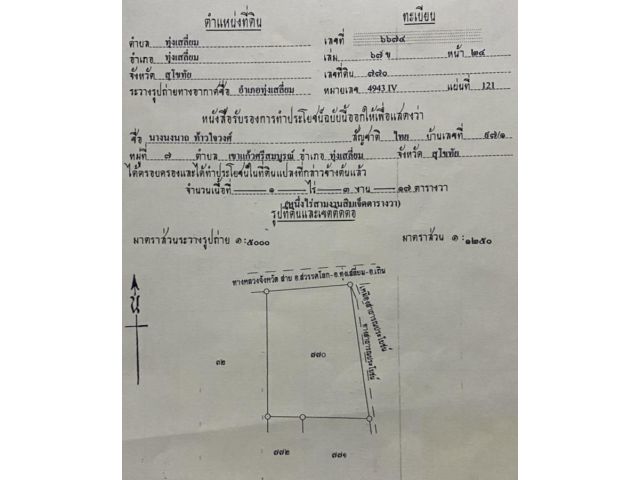 ตำแหน่งที่ดิน
ทะเบียน
ตำบล ทุ่งเสลี่ยม
เลขที่ ๖๖๗๔
อำเภอ ทุ่งเสลี่ยม
เล่ม ๖๗ ข หน้า ๒๔
จังหวัด สุโขทัย
เลขที่ดิน ๗๗๐
ระวางรูปถ่ายทางอากาศชื่อ อำเภอทุ่งเสลี่ยม
หมายเลข 4943 IV แผ่นที่ 121
หนังสือรับรองการทำประโยชน์ฉบับนี้ออกให้เพื่อแสดงว่า
ชื่อ นางนงนาถ ท้าวใจวงศ์ สัญชาติ ไทย บ้านเลขที่ ๔๗/๑
หมู่ที่ ๗ ตำบล เขาแก้วศรีสมบูรณ์ อำเภอ ทุ่งเสลี่ยม จังหวัด สุโขทัย
ได้ครอบครองและได้ทำประโยชน์ในที่ดินแปลงที่กล่าวข้างต้นแล้ว
จำนวนเนื้อที่ ๑ ไร่ ๓ งาน ๑๗ ตารางวา
(หนึ่งไร่สามงานสิบเจ็ดตารางวา)
รูปที่ดินและเขตติดต่อ
มาตราส่วนระวางรูปถ่าย ๑:๕๐๐๐
มาตราส่วน ๑:๑๒๕๐
ทางหลวงจังหวัด สาย อ.สวรรคโลก-อ.ทุ่งเสลี่ยม-อ.เถิน
เหมืองสาธารณประโยชน์
ทางสาธารณประโยชน์
น
๓๒
๗๗๐
๗๗๒
๗๗๑